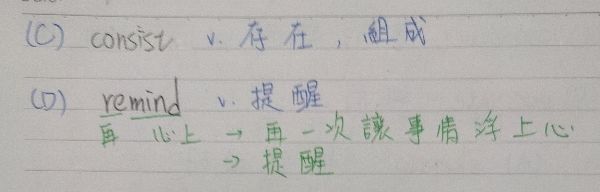 (C) consist v. 存在，組成
(D) remind v. 提醒
再 心上 → 再一次讓事情浮上心
→ 提醒